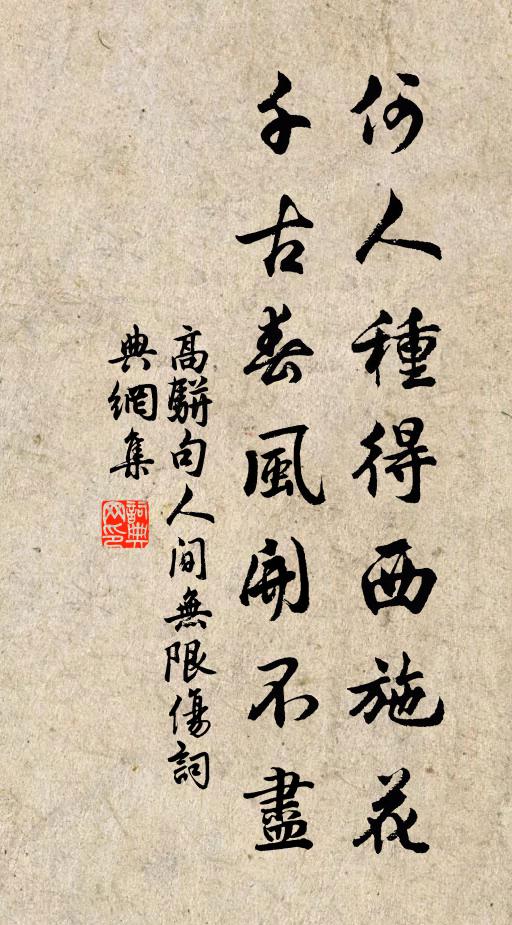 何人種得西施花
千古春風開不盡
高駢句人間無限傷詞
典網集
詞典网印